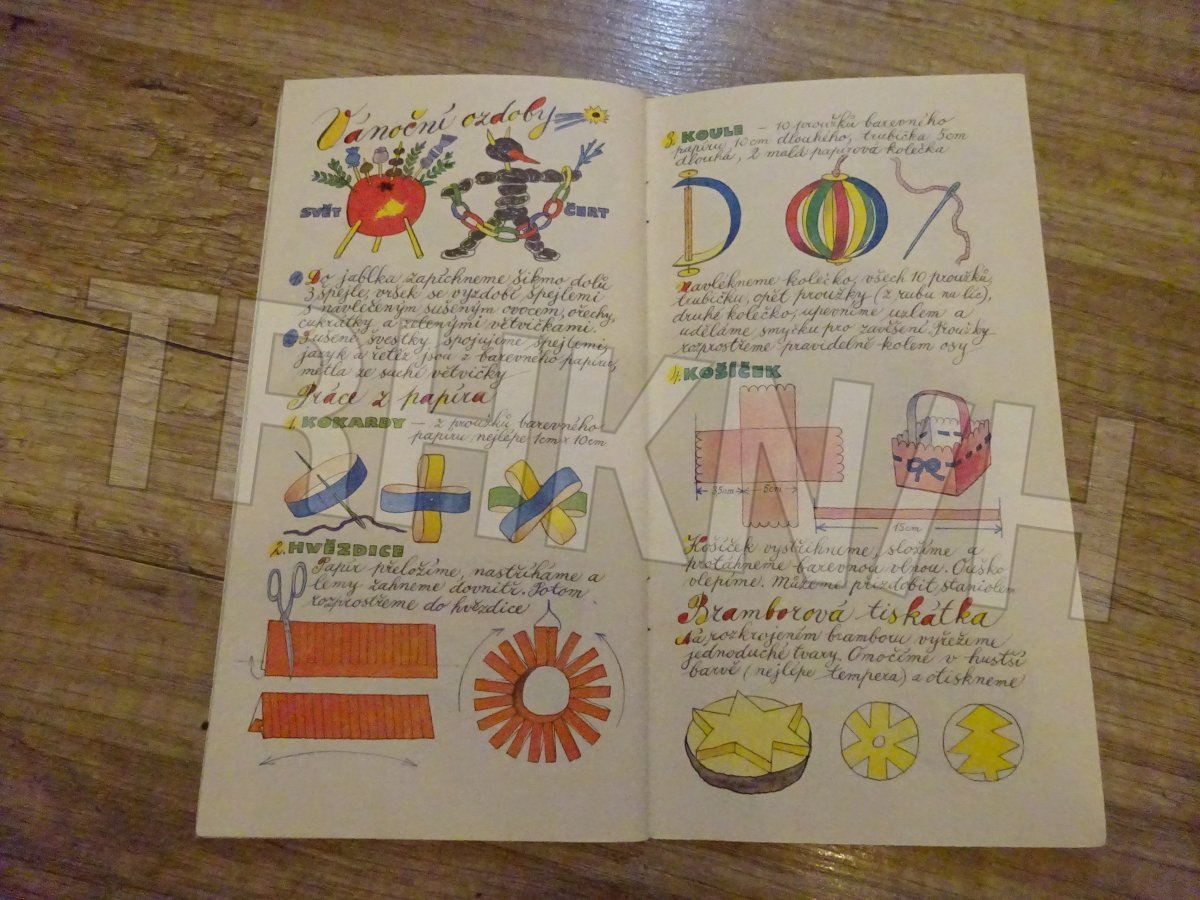 Vánoční ozdoby
SVĚT
ČERT
1. Do jablka zapíchneme šikmo dolů
3 špejle, vršek se vyzdobí špejlemi
s navlečeným sušeným ovocem, ořechy,
cukrátky a zelenými větvičkami.
Sušené švestky spojujeme špejlemi,
jazyk a řetěz jsou z barevného papíru,
metla ze suché větvičky
Práce z papíru
1. KOKARDY — z proužků barevného
papíru, nejlépe 1cm x 10cm
2. HVĚZDICE
Papír přeložíme, nastříháme a
lemy zahneme dovnitř. Potom
rozprostřeme do hvězdice
3. KOULE — 10 proužků barevného
papíru, 10cm dlouhého, trubička 5cm
dlouhá, 2 malá papírová kolečka
Navlékneme kolečko, všech 10 proužků,
trubičku, opět proužky (z rubu na líc),
druhé kolečko, upevníme uzlem a
uděláme smyčku pro zavěšení. Proužky
rozprostřeme pravidelně kolem osy
4. KOŠÍČEK
3,5cm
5cm
15cm
Košíček vystřihneme, složíme a
protáhneme barevnou vlnou. Ouško
vlepíme. Můžeme přizdobit staniolem
Bramborová tiskátka
Na rozkrojeném bramboru vyřežeme
jednoduché tvary. Omočíme v hustší
barvě (nejlépe tempera) a otiskneme
TRHKNIH